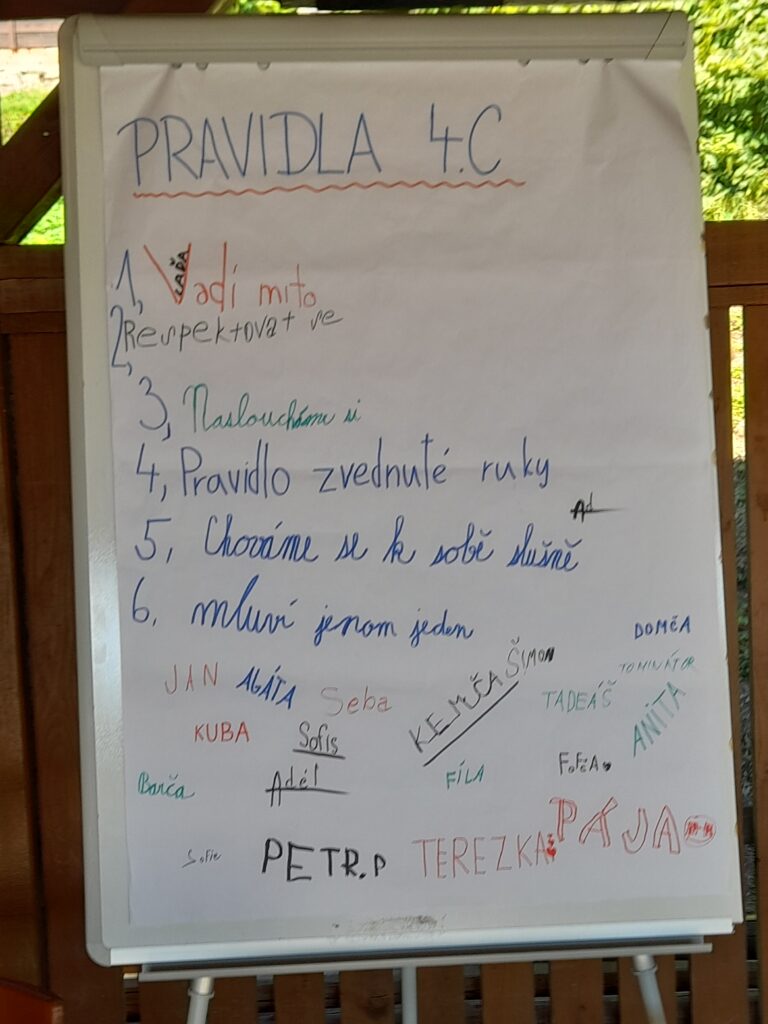 PRAVIDLA 4.C
1, Vadí mi to
LÁĎA
2, Respektovat se
3, Nasloucháme si
4, Pravidlo zvednuté ruky
Ad
5, Chováme se k sobě slušně
6. mluví jenom jeden
DOMČA
JAN AGÁTA Seba KEMČA ŠIMON TADEÁŠ TOMINÁTOR
KUBA Sofis ANITA
Barča Adél FÍLA FOFČA
Sofie PETR.P TEREZKA PÁJA